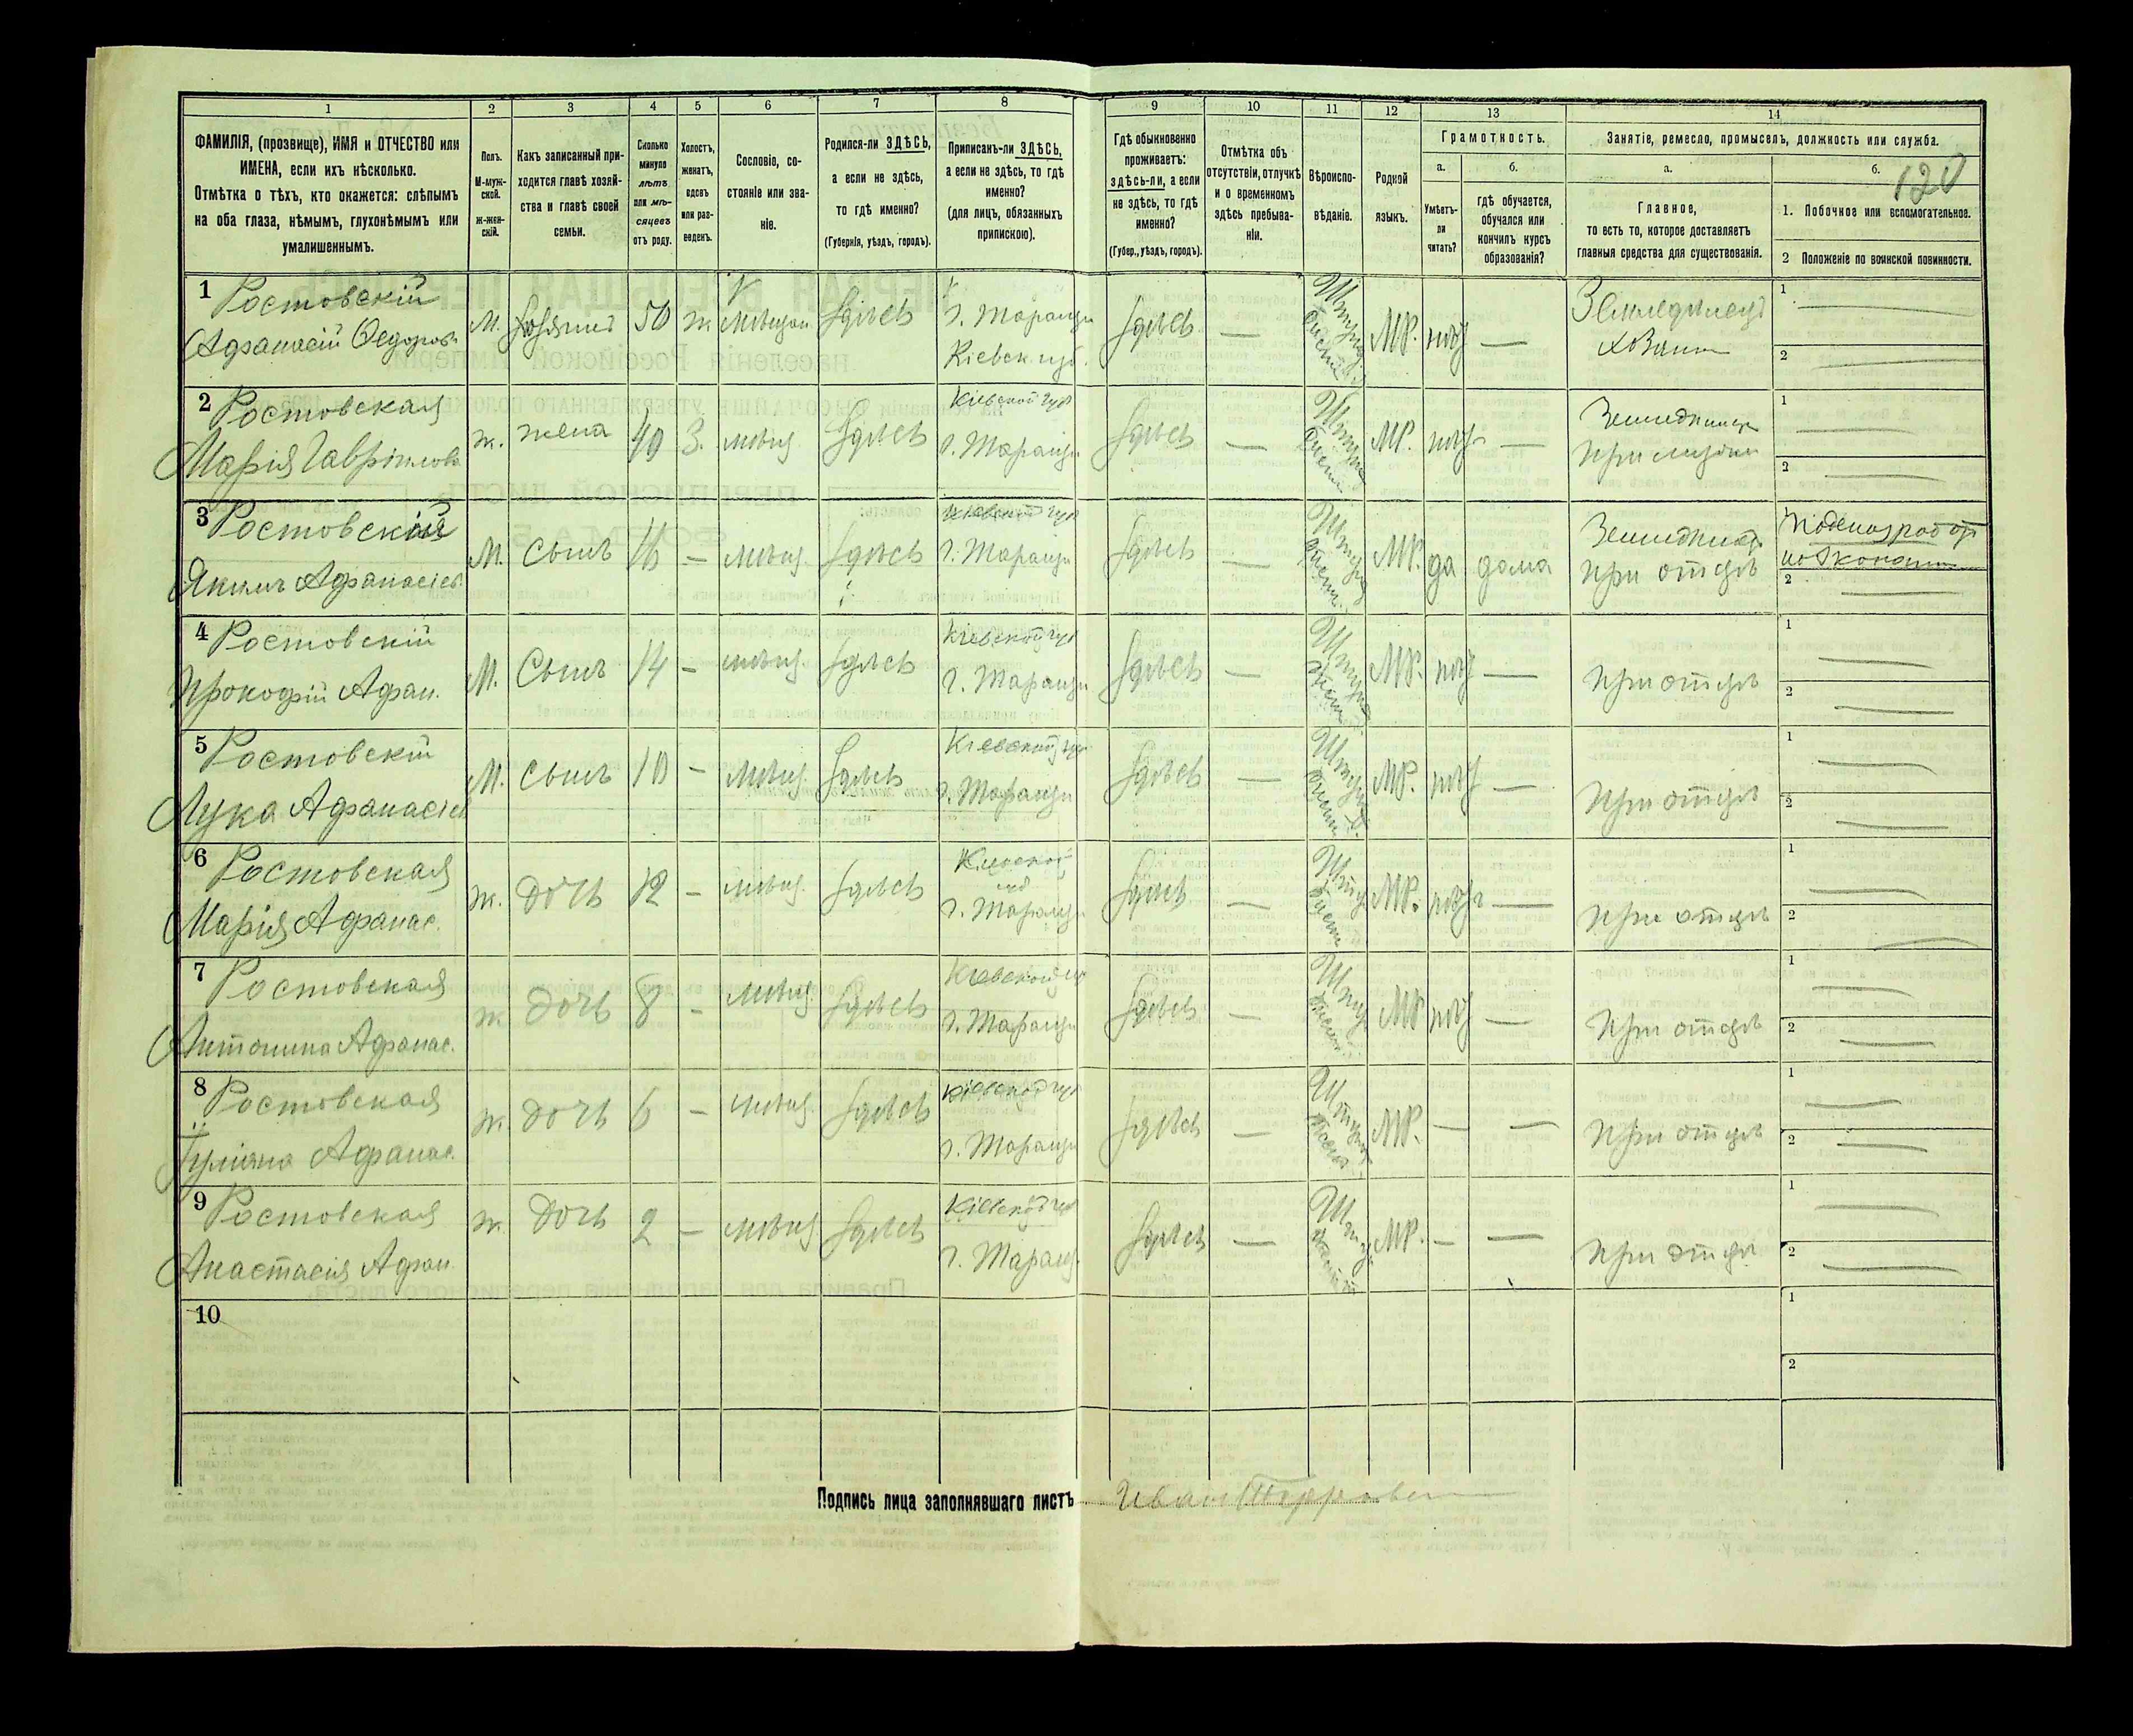 1
2
3
4
5
6
7
8
9
10
11
12
13
14
ФАМИЛІЯ, (прозвище), ИМЯ и ОТЧЕСТВО или
ИМЕНА, если ихъ нѣсколько.
Отмѣтка о тѣхъ, кто окажется: слѣпымъ
на оба глаза, нѣмымъ, глухонѣмымъ или
умалишеннымъ.
Полъ.
М-муж-
ской.
ж-жен-
скій.
Какъ записанный при-
ходится главѣ хозяй-
ства и главѣ своей
семьи.
Сколько
минуло
лѣтъ
или мѣ-
сяцевъ
отъ роду.
Холостъ,
женатъ,
вдовъ
или раз-
веденъ.
Сословіе, со-
стояніе или зва-
ніе.
Родился-ли ЗДѢСЬ,
а если не здѣсь,
то гдѣ именно?
(Губернія, уѣздъ, городъ).
Приписанъ-ли ЗДѢСЬ,
а если не здѣсь, то гдѣ
именно?
(для лицъ, обязанныхъ
припискою).
Гдѣ обыкновенно
проживаетъ:
здѣсь-ли, а если
не здѣсь, то гдѣ
именно?
(Губер., уѣздъ, городъ).
Отмѣтка объ
отсутствіи, отлучкѣ
и о временномъ
здѣсь пребыва-
ніи.
Вѣроиспо-
вѣданіе.
Родной
языкъ.
Грамотность.
а.
Умѣетъ-
ли
читать?
б.
гдѣ обучается,
обучался или
кончилъ курсъ
образованія?
Занятіе, ремесло, промыселъ, должность или служба.
а.
Главное,
то есть то, которое доставляетъ
главныя средства для существованія.
б.
120
1. Побочное или вспомогательное.
2 Положеніе по воинской повинности.
1 Ростовскій
Афанасій Федоров
М. хозяинъ 50 ж. мѣщан. здѣсь
г. Таращи
Кіевск. губ.
здѣсь — МР. нѣтъ —
Земледѣлецъ
1
2
2 Ростовская
Марія Гавріилова
ж. жена 40 З. мѣщ. здѣсь
Кіевской губ
г. Таращи
здѣсь — МР. нѣтъ —
1
2
3 Ростовскій
Якимъ Афанасіев
М. Сынъ 16 — мѣщ. здѣсь
Кіевской губ
г. Таращи
здѣсь — МР. да дома
при отцѣ
1
2
4 Ростовскій
Прокофій Афан.
М. Сынъ 14 — мѣщ. здѣсь
Кіевской губ
г. Таращи
здѣсь — МР. нѣтъ —
при отцѣ
1
2
5 Ростовскій
Лука Афанасіев
М. Сынъ 10 — мѣщ. здѣсь
Кіевской губ
г. Таращи
здѣсь — МР. нѣтъ —
при отцѣ
1
2
6 Ростовская
Марія Афанас.
ж. дочь 12 — мѣщ. здѣсь
Кіевской
губ
г. Таращи
здѣсь — МР. нѣтъ —
при отцѣ
1
2
7 Ростовская
Антонина Афанас.
ж. дочь 8 — мѣщ. здѣсь
Кіевской губ
г. Таращи
здѣсь — МР нѣтъ —
при отцѣ
1
2
8 Ростовская
Іуліяна Афанас.
ж. дочь 6 — мѣщ. здѣсь
Кіевской губ
г. Таращи
здѣсь — МР. — —
при отцѣ
1
2
9 Ростовская
Анастасія Афан.
ж. дочь 2 — мѣщ. здѣсь
Кіевской губ
г. Таращ.
здѣсь — МР. — —
при отцѣ
1
2
10
1
2
Подпись лица заполнявшаго листъ Иван